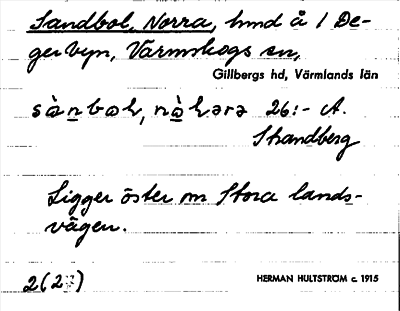 Sandbol, Norra, hmd å 1 De-
gerbyn, Värmskogs sn,
Gillbergs hd, Värmlands län
26:- A.
Strandberg
Ligger öster om Stora lands-
vägen.
HERMAN HULTSTRÖM c. 1915